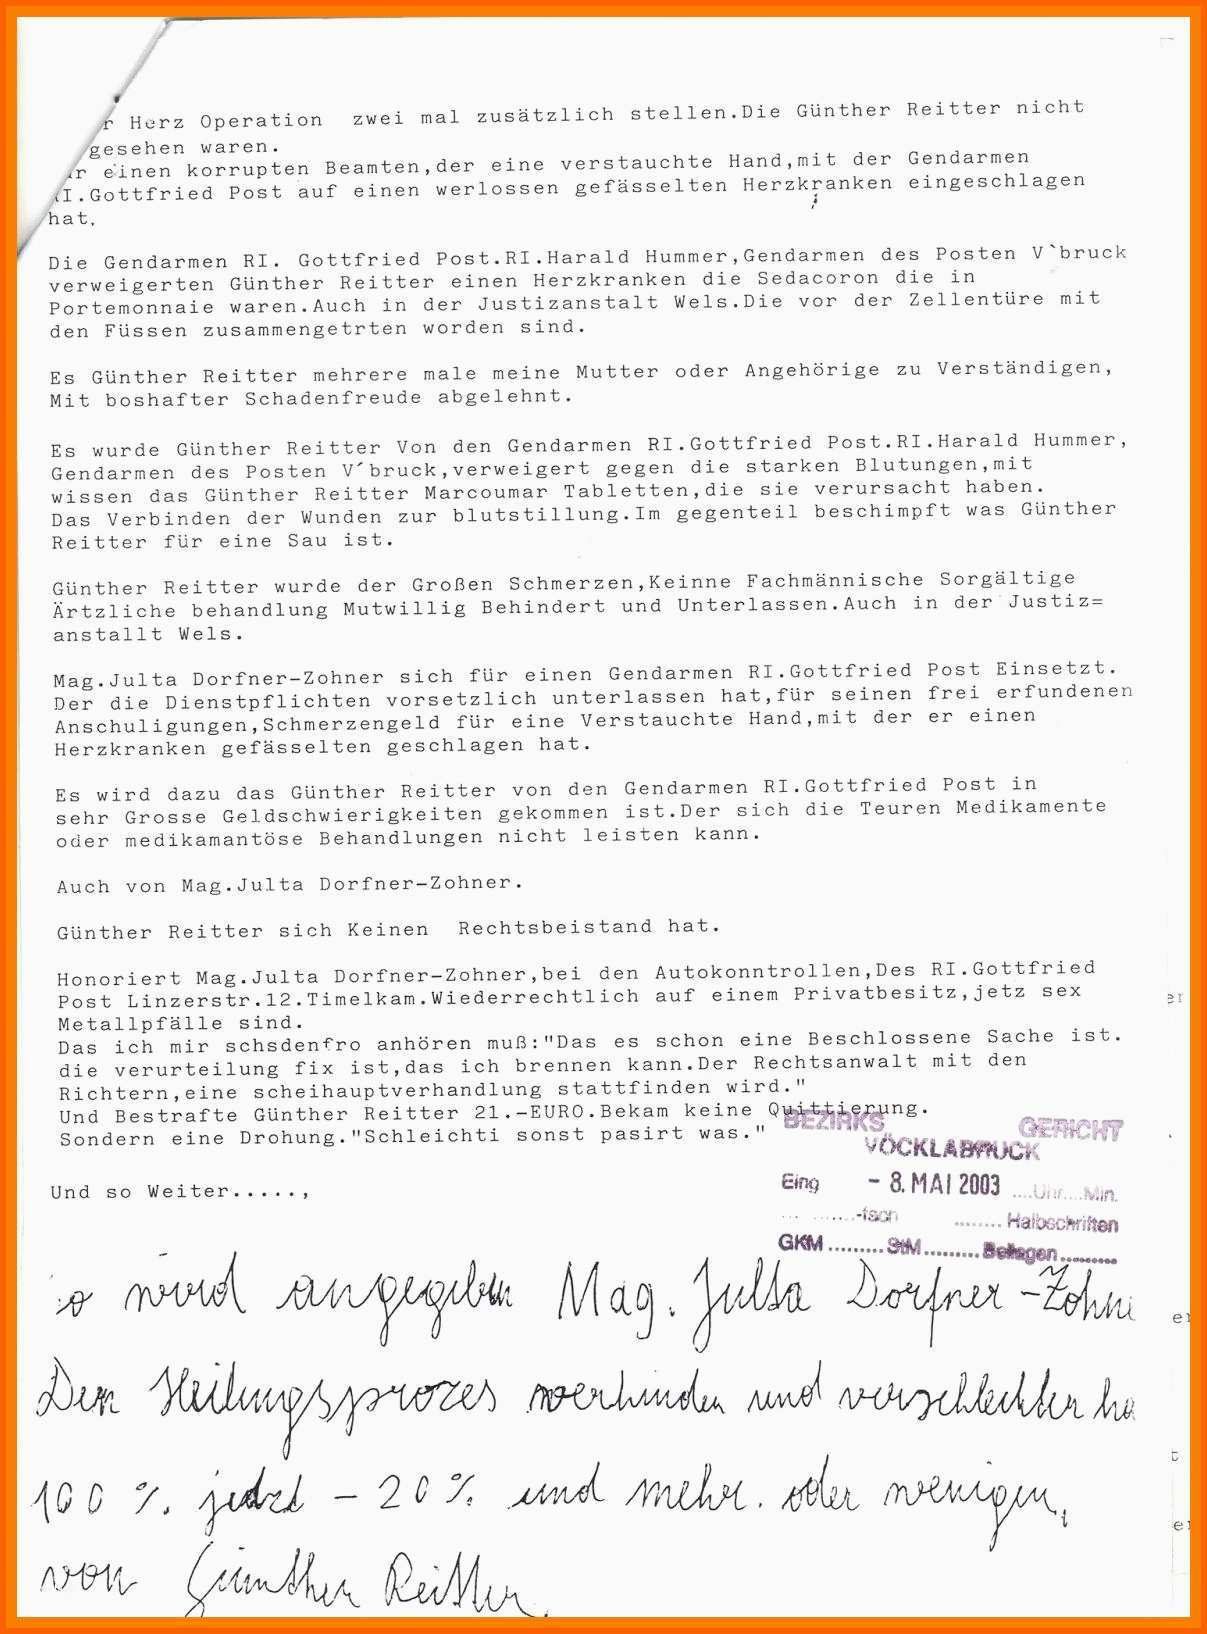 r Herz Operation  zwei mal zusätzlich stellen.Die Günther Reitter nicht
gesehen waren.
r einen korrupten Beamten,der eine verstauchte Hand,mit der Gendarmen
I.Gottfried Post auf einen werlossen gefässelten Herzkranken eingeschlagen
hat.
Die Gendarmen RI. Gottfried Post.RI.Harald Hummer,Gendarmen des Posten V`bruck
verweigerten Günther Reitter einen Herzkranken die Sedacoron die in
Portemonnaie waren.Auch in der Justizanstalt Wels.Die vor der Zellentüre mit
den Füssen zusammengetrten worden sind.
Es Günther Reitter mehrere male meine Mutter oder Angehörige zu Verständigen,
Mit boshafter Schadenfreude abgelehnt.
Es wurde Günther Reitter Von den Gendarmen RI.Gottfried Post.RI.Harald Hummer,
Gendarmen des Posten V´bruck,verweigert gegen die starken Blutungen,mit
wissen das Günther Reitter Marcoumar Tabletten,die sie verursacht haben.
Das Verbinden der Wunden zur blutstillung.Im gegenteil beschimpft was Günther
Reitter für eine Sau ist.
Günther Reitter wurde der Großen Schmerzen,Keinne Fachmännische Sorgältige
Ärtzliche behandlung Mutwillig Behindert und Unterlassen.Auch in der Justiz=
anstallt Wels.
Mag.Julta Dorfner-Zohner sich für einen Gendarmen RI.Gottfried Post Einsetzt.
Der die Dienstpflichten vorsetzlich unterlassen hat,für seinen frei erfundenen
Anschuligungen,Schmerzengeld für eine Verstauchte Hand,mit der er einen
Herzkranken gefässelten geschlagen hat.
Es wird dazu das Günther Reitter von den Gendarmen RI.Gottfried Post in
sehr Grosse Geldschwierigkeiten gekommen ist.Der sich die Teuren Medikamente
oder medikamantöse Behandlungen nicht leisten kann.
Auch von Mag.Julta Dorfner-Zohner.
Günther Reitter sich Keinen  Rechtsbeistand hat.
Honoriert Mag.Julta Dorfner-Zohner,bei den Autokonntrollen,Des RI.Gottfried
Post Linzerstr.12.Timelkam.Wiederrechtlich auf einem Privatbesitz,jetz sex
Metallpfälle sind.
Das ich mir schsdenfro anhören muß:"Das es schon eine Beschlossene Sache ist.
die verurteilung fix ist,das ich brennen kann.Der Rechtsanwalt mit den
Richtern,eine scheihauptverhandlung stattfinden wird."
Und Bestrafte Günther Reitter 21.-EURO.Bekam keine Quittierung.
Sondern eine Drohung."Schleichti sonst pasirt was."
BEZIRKS GERICHT
VÖCKLABRUCK
Eing - 8. MAI 2003 ....Uhr....Min.
-fach ........ Halbschriften
GKM ......... StM ......... Beilagen .........
Und so Weiter.....,
so wird angegeben Mag. Julta Dorfner-Zohne
Den Heilungsprozes verhinden und verschlechter ha
100 % jetzt - 20 % und mehr. oder wenigen,
von Günther Reitter.